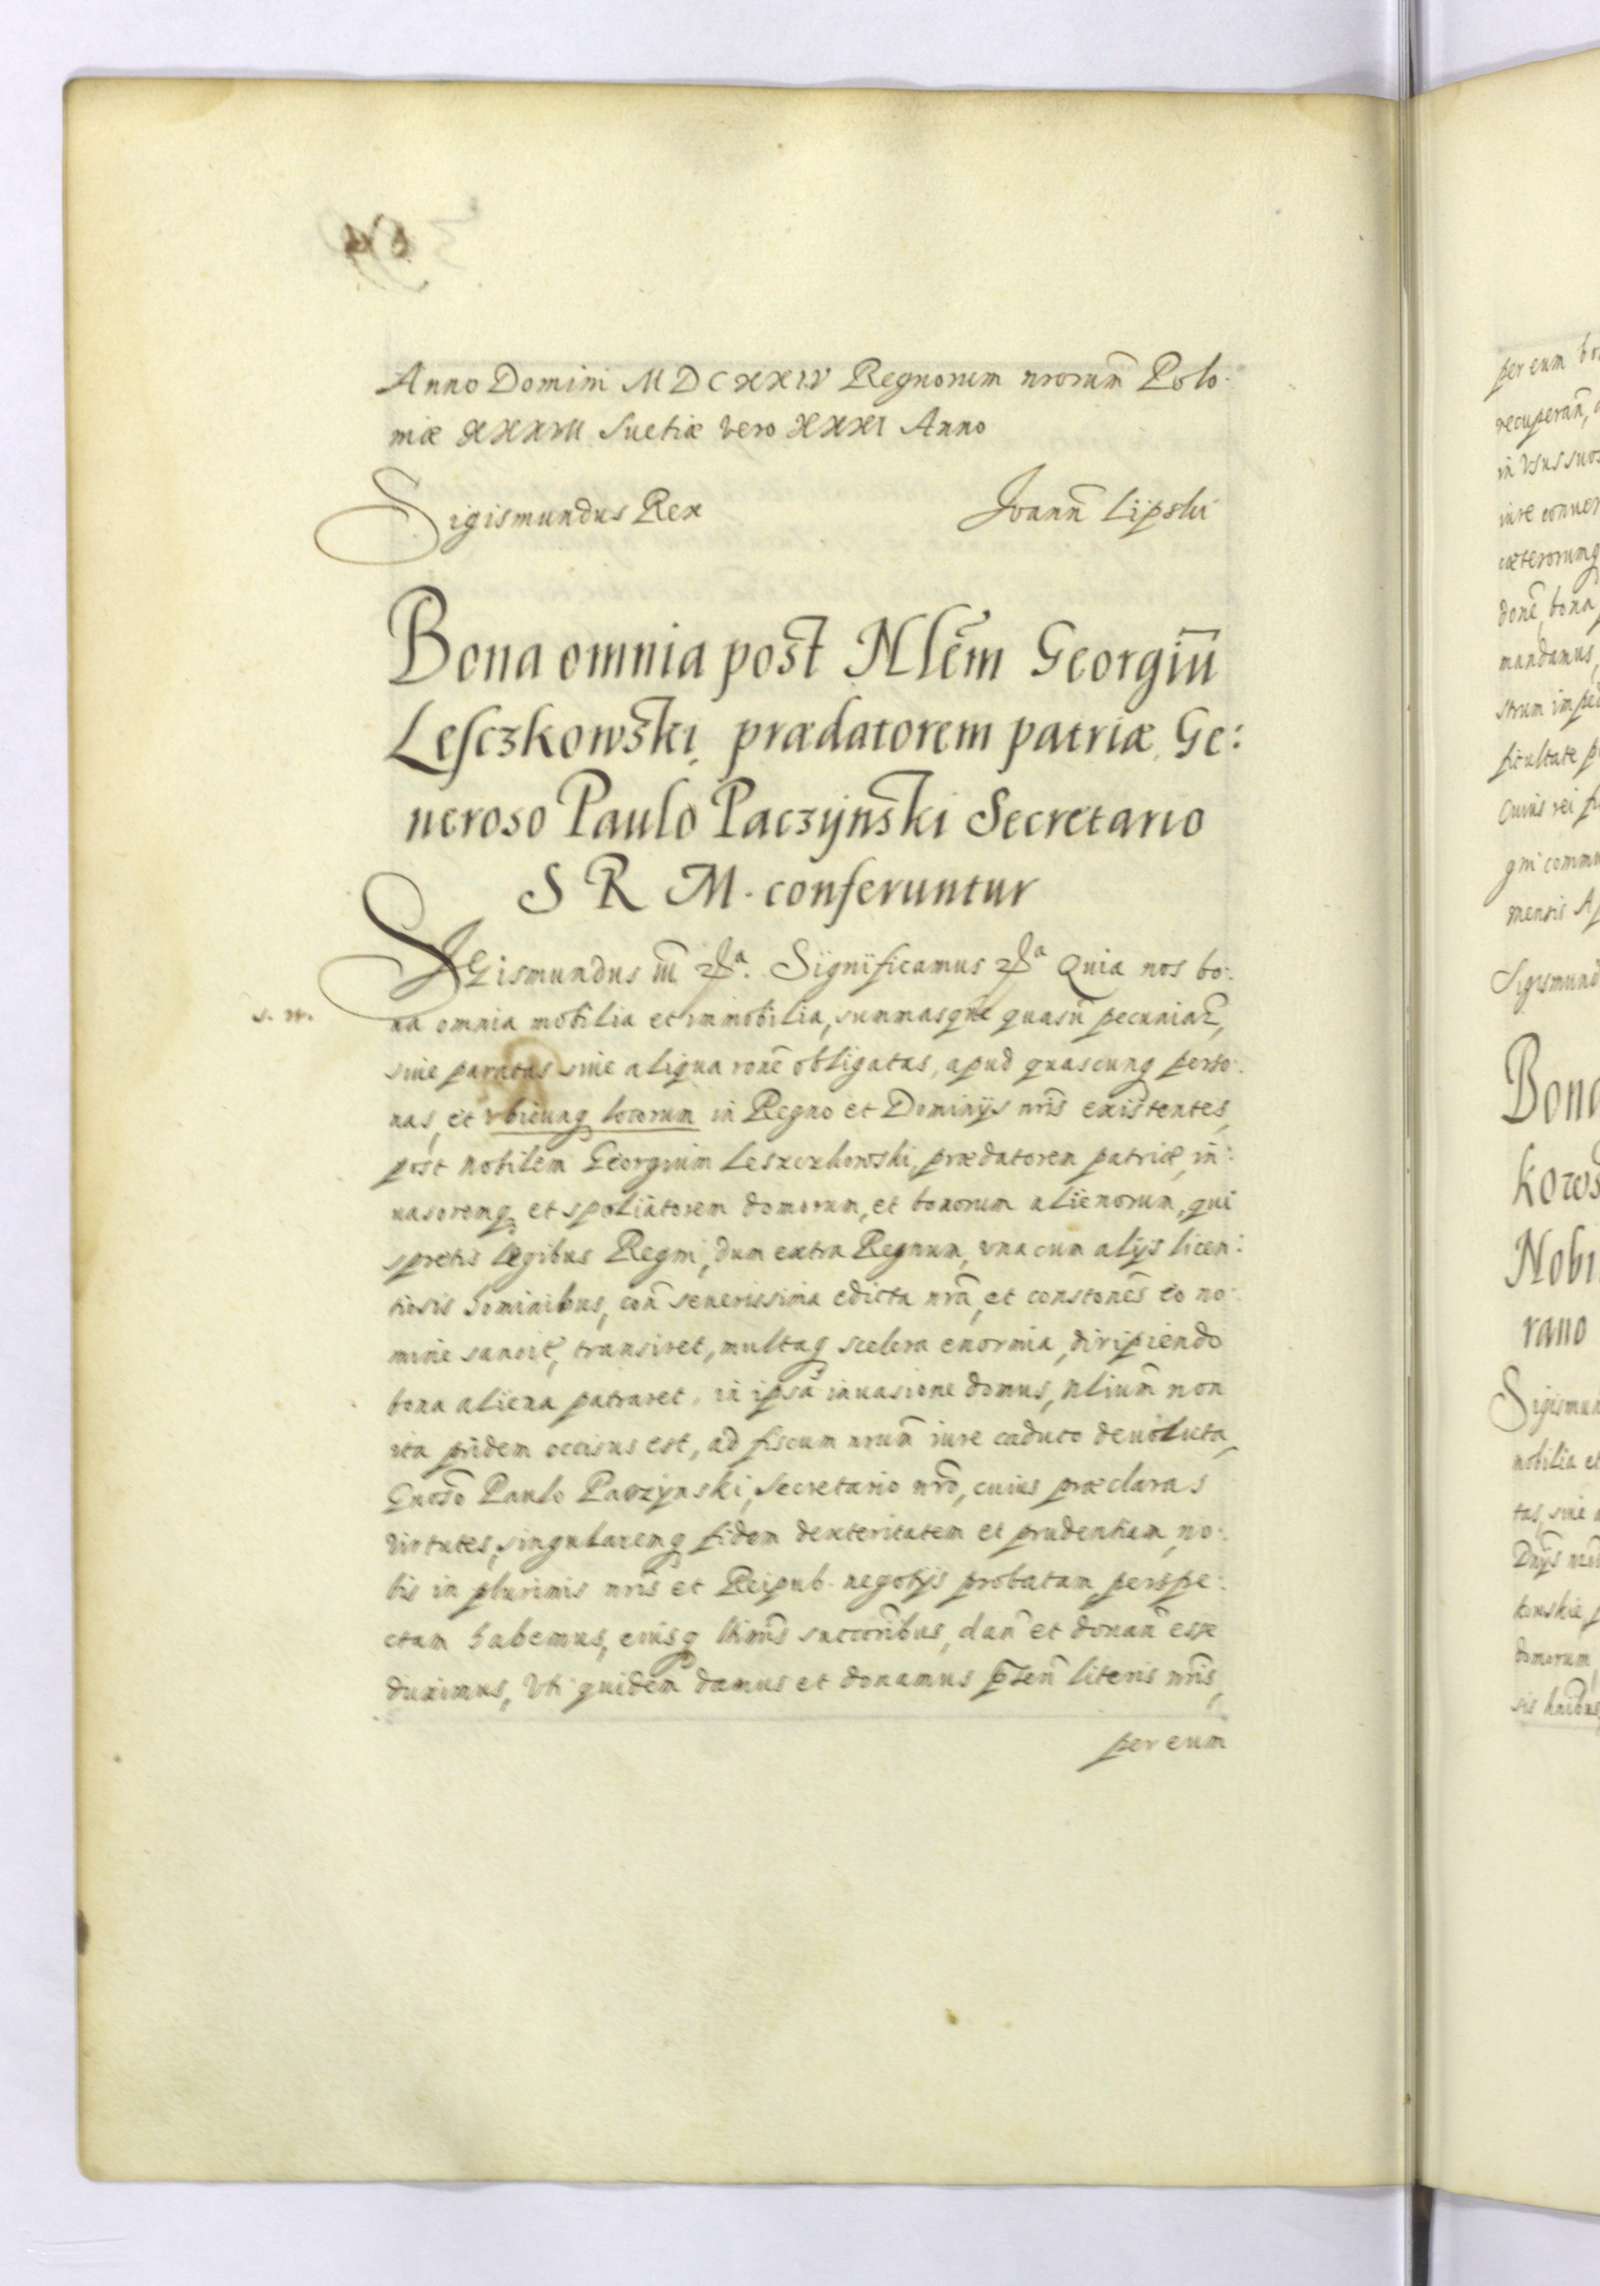 Anno Domini MDCXXIV Regnorum nrorum̄ Polo:
niæ XXXVII Suetiæ vero XXXI Anno
Sigismundus Rex Joann̄ Lipski
Bona omnia post Nlem̄ Georgiū
Lesczkowski prædatorem patriæ Ge:
neroso Paulo Paczÿnski Secretario
S R M. conferuntur
SIGismundus III &a. Significamus &a Quia nos bo:
na omnia mobilia et immobilia, summasque quasū pecuniar,
siue paratas siue aliqua rone obligatas, apud quascunq perso:
nas, et vbicunq locorum in Regno et Dominÿs nris existentes,
post nobilem Georgium Leszczkowski, prædatorem patriæ, in:
uasoremq et spoliatorem domorum, et bonorum alienorum, qui
spretis legibus Regni, dum extra Regnum, vna cum alÿs licen:
tiosis hominibus, con̄ seuerissima edicta nra, et constones eo no:
mine sancit, transiret, multaq scelera enormia, diripiendo
bona aliena patraret, in ipsa inuasione domus, nlium̄ non
ita pridem occisus est, ad fiscum nrum̄ iure caduco deuoluta,
Gnoso Paulo Paczynski, Secretario nro, cuius præclaras
virtutes, singularemq fidem dexteritatem et prudentiam, no:
bis in plurimis nris et Reipub. negotÿs probatam perspe:
ctam habemus, eiusq ltimis succoribus, dan̄ et donan̄ esse
duximus, Vti quidem damus et donamus pr̄sen̄ literis nris,
per eum
per eum
recuperan̄,
in vsus suos
iure
cæterorumq
done bona
mandamus,
strum
ficultate
Cuius rei
gni
mensis
Bona
Nobi
rano
mobilia et
tas, siue
domorum